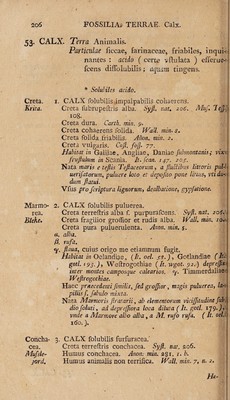 206 FOSSILIA: TERRAE. Calx.
53. CALX. Terra Animalis.
Particulae siccae, farinaceae, friabiles, inqui-
nantes: acido (certe vstulata) efferue-
scens dissolubilis; aquam tingens.
* Solubiles acido.
Creta. 1. CALX solubilis impalpabilis cohaerens.
Krita. Creta subrupestris alba. Syst. nat. 206. Mus. Tess.
108.
Creta dura. Carth. min. 9.
Creta cohaerens solida. Wall. min.
Creta solida friabilis. Anon. min. 2.
Creta vulgaris. Cess. foss. 77.
Habitat in Galliae, Angliae, Daniae submontanis; vix
frustulum in Scania. It. scan. 147. 205.
Nata maris e testis Testaceorum, a fluctibus littoris
uerisatarum, puluere loco et depositu pone litus, vti
dum statui.
Vsus pro scriptura lignorum, dealbatione, gypsatione.
Marmo- 2. CALX solubilis puluerea.
rea. Creta terrestris alba s. purpurascens. Syst. nat. 206.
Bleke. Creta fragilior grossior et rudis alba. Wall. min.
Creta pura puluerulenta. Anon. min. 5.
α. alba.
β. rufa.
γ. flaua, cuius origo me etiamnum fugit.
Habitat in Oelandiae, (It. oel. 57.), Gotlandiae (It.
gotl. 195.), Westrogothiae (It. wgot. 92.) depressis
inter montes camposque calcarios. γ. Timmerdaliae
Westrogothiae.
Haec praecedenti similis, sed grossior, magis puluerea,
pillis s. sabulo mixta.
Nata Marmoris stratarii, ab elementorum vicissitudine
dio soluti, ad depressiora loca dituta (It. gotl. 179.);
vnde a Marmore albo alba, a M. rufo rufa. (It. oel.
160.).
Concha- 3. CALX solubilis furfuracea.
cea. Creta terrestris conchacea. Syst. nat. 206.
Musle- Humus conchacea. Anon. min. 291. 1. b.
jord. Humus animalis non terrifica. Wall. min. 7. n. 2.
Ha-